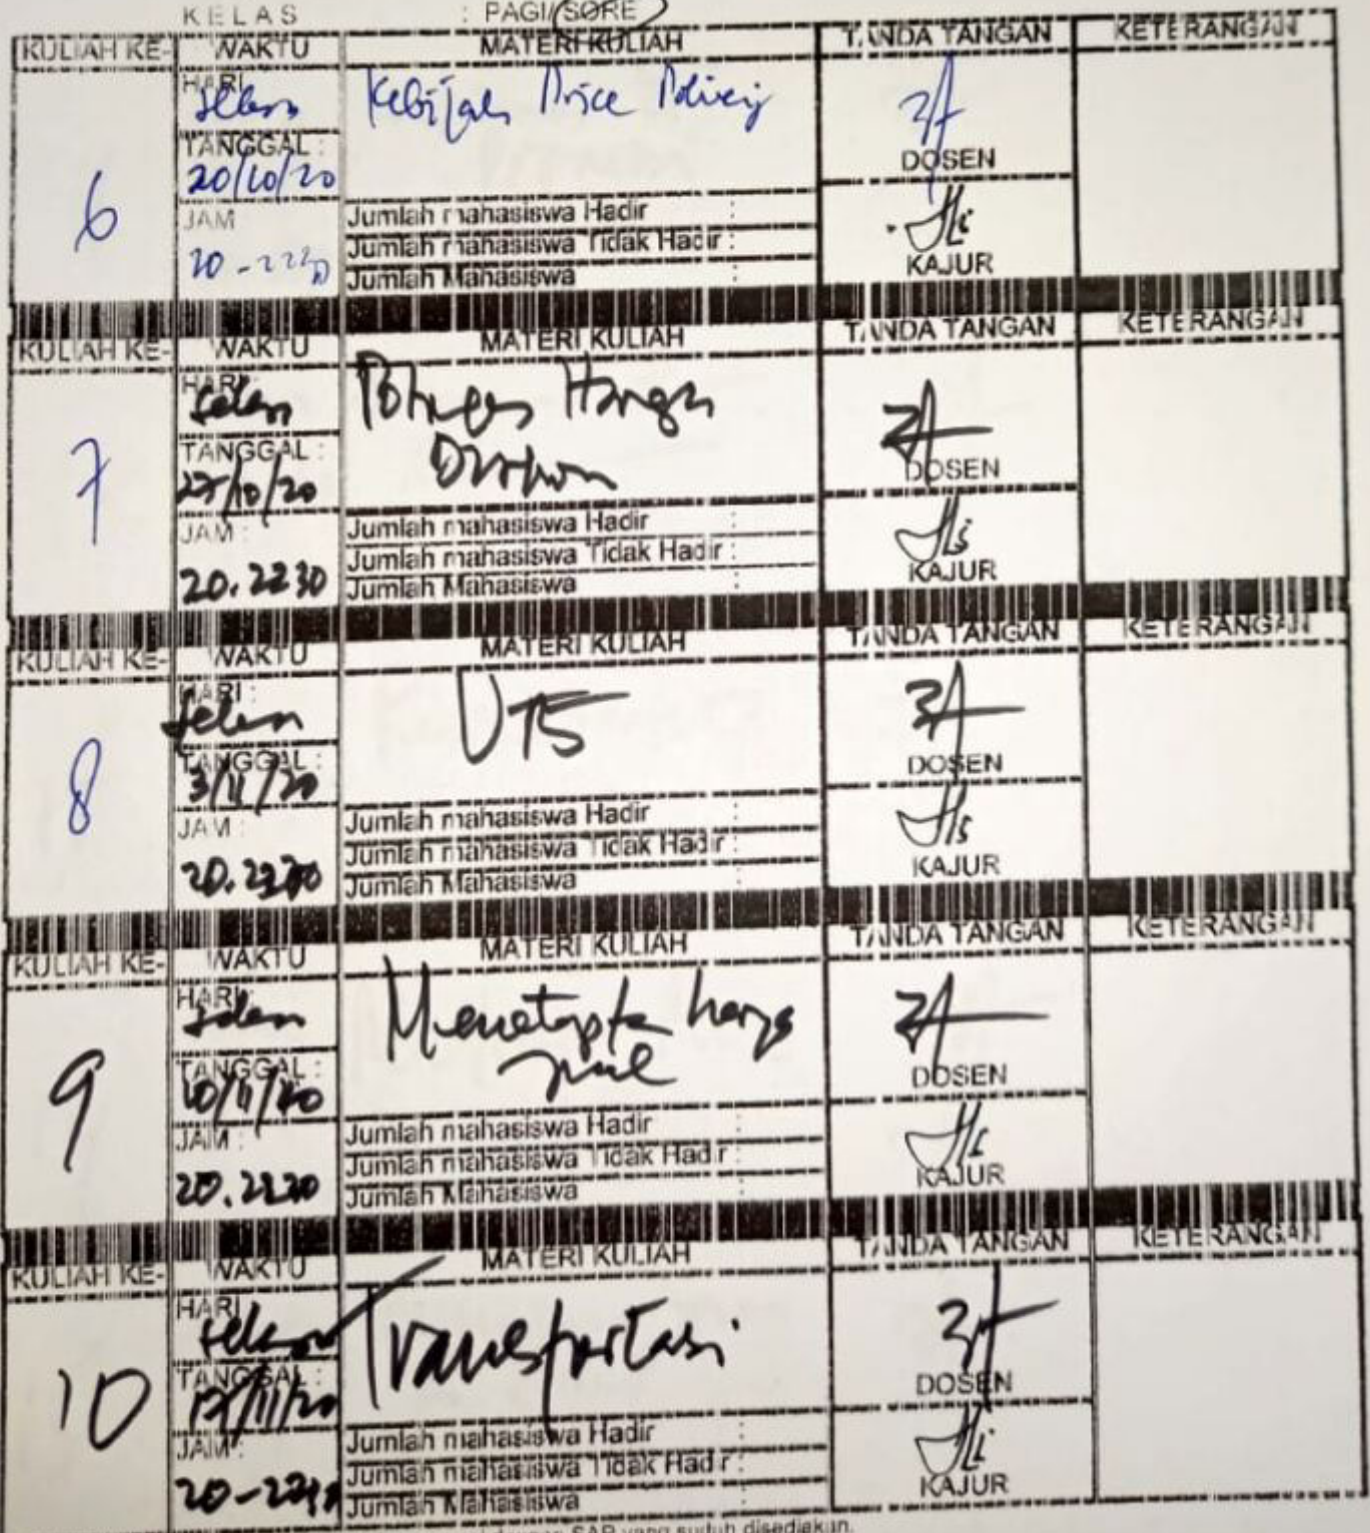 KELAS : PAGI/SORE
KULIAH KE- WAKTU MATERI KULIAH TANDA TANGAN KETERANGAN
6
HARI
Selasa
Price
TANGGAL :
20/10/20
JAM
20 - 2230
Jumlah mahasiswa Hadir :
Jumlah mahasiswa Tidak Hadir :
Jumlah Mahasiswa :
DOSEN
KAJUR
KULIAH KE- WAKTU MATERI KULIAH TANDA TANGAN KETERANGAN
7
HARI :
Selasa
Harga
TANGGAL :
27/10/20
JAM :
20.2230
Jumlah mahasiswa Hadir :
Jumlah mahasiswa Tidak Hadir :
Jumlah Mahasiswa :
DOSEN
KAJUR
KULIAH KE- WAKTU MATERI KULIAH TANDA TANGAN KETERANGAN
8
HARI :
Selasa
UTS
TANGGAL :
3/11/20
JAM :
20.2230
Jumlah mahasiswa Hadir :
Jumlah mahasiswa Tidak Hadir :
Jumlah Mahasiswa :
DOSEN
KAJUR
KULIAH KE- WAKTU MATERI KULIAH TANDA TANGAN KETERANGAN
9
HARI :
Selasa
harga
TANGGAL :
10/11/20
JAM :
20.2230
Jumlah mahasiswa Hadir :
Jumlah mahasiswa Tidak Hadir :
Jumlah Mahasiswa :
DOSEN
KAJUR
KULIAH KE- WAKTU MATERI KULIAH TANDA TANGAN KETERANGAN
10
HARI
Selasa
Transportasi
TANGGAL :
17/11/20
JAM :
Jumlah mahasiswa Hadir :
Jumlah mahasiswa Tidak Hadir :
Jumlah Mahasiswa :
DOSEN
KAJUR
SAP yang sudah disediakan.